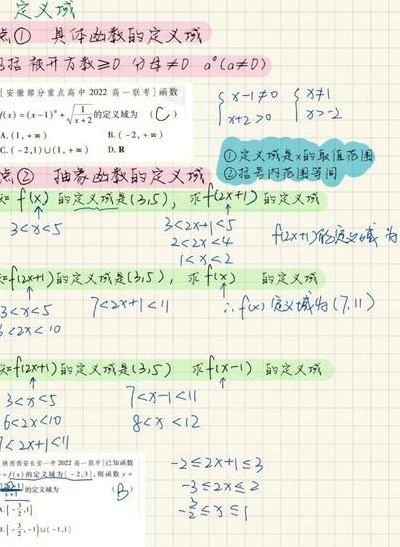 定义域
点① 具体函数的定义域
包括 被开方数≥0 分母≠0 a⁰(a≠0)
[安徽部分重点高中 2022 高一联考] 函数
f(x)=(x-1)⁰+√(1/(x+2)) 的定义域为 (C)
A. (1,+∞) B. (-2,+∞)
C. (-2,1)∪(1,+∞) D. R
{ x-1≠0 { x≠1
x+2>0 x>-2
①定义域是x的取值范围
②括号内范围等同
点② 抽象函数的定义域
知 f(x) 的定义域是(3,5), 求f(2x+1) 的定义域
3<x<5 3<2x+1<5
2<2x<4 f(2x+1)的定义域 为
1<x<2
知f(2x+1)的定义域是(3,5), 求f(x) 的定义域
3<x<5 7<2x+1<11 ∴f(x)定义域为(7,11)
6<2x<10
知f(2x+1)的定义域是(3,5) 求f(x-1) 的定义域
3<x<5 7<x-1<11
6<2x<10 8<x<12
7<2x+1<11
[陕西西安长安一中 2022 高一期中] 已知函数
=f(x)的定义域为[-2,3],则函数 y=
的定义域为 (B)
A. [-3/2,1]
B. [-3/2,-1)∪(-1,1]
-2≤2x+1≤3
-3≤2x≤2
-3/2≤x≤1